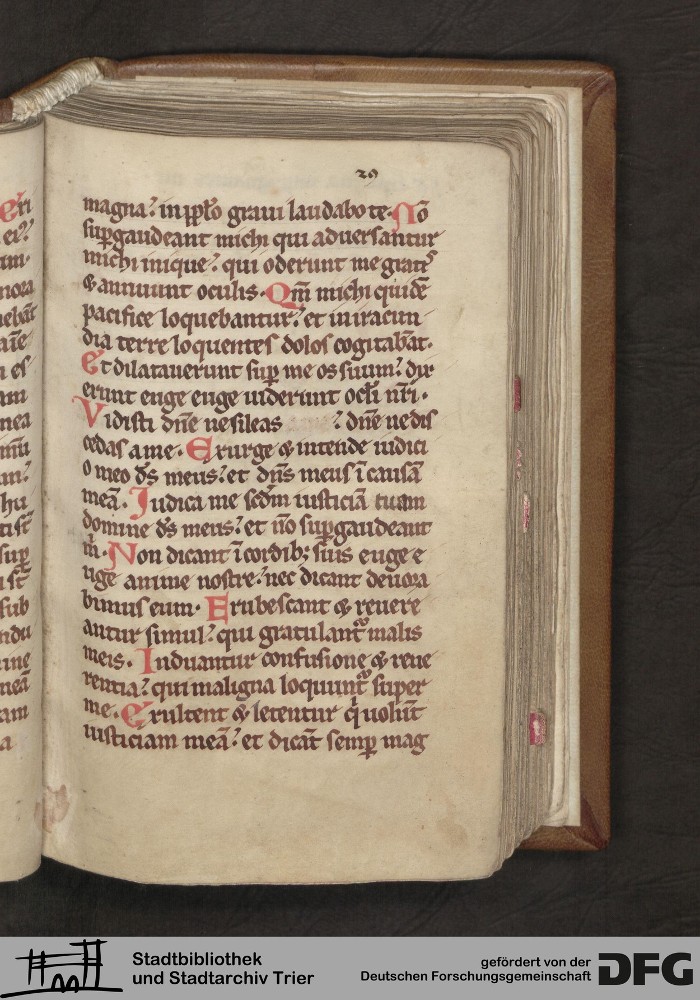 29
magna: in pplo graui laudabo te. No
supgaudeant michi qui aduersantur
michi inique: qui oderunt me gratis
& annuunt oculis. Qm michi quidē
pacifice loquebantur: et in iracun
dia terre loquentes dolos cogitabāt.
Et dilatauerunt sup me os suum: dix
erunt euge euge uiderunt ocli nri.
Vidisti dne ne sileas : dne ne dis
cedas a me. Exurge & intende iudici
o meo ds meus: et dns meus ī causā
meā. Iudica me scdm iusticiā tuam
domine ds meus: et nō supgaudeant
m. Non dicant ī cordib; suis euge e
uge anime nostre: nec dicant deuora
bimus eum. Erubescant & reuere
antur simul: qui gratulant malis
meis. Induantur confusione & reue
rentia: qui maligna loquunt super
me. Exultent & letentur q uolūt
iusticiam meā: et dicāt semp mag
eri
ei:
am
nea
hu
sup
sub
ine
meā
am
a
Stadtbibliothek
und Stadtarchiv Trier
gefördert von der
Deutschen Forschungsgemeinschaft
DFG